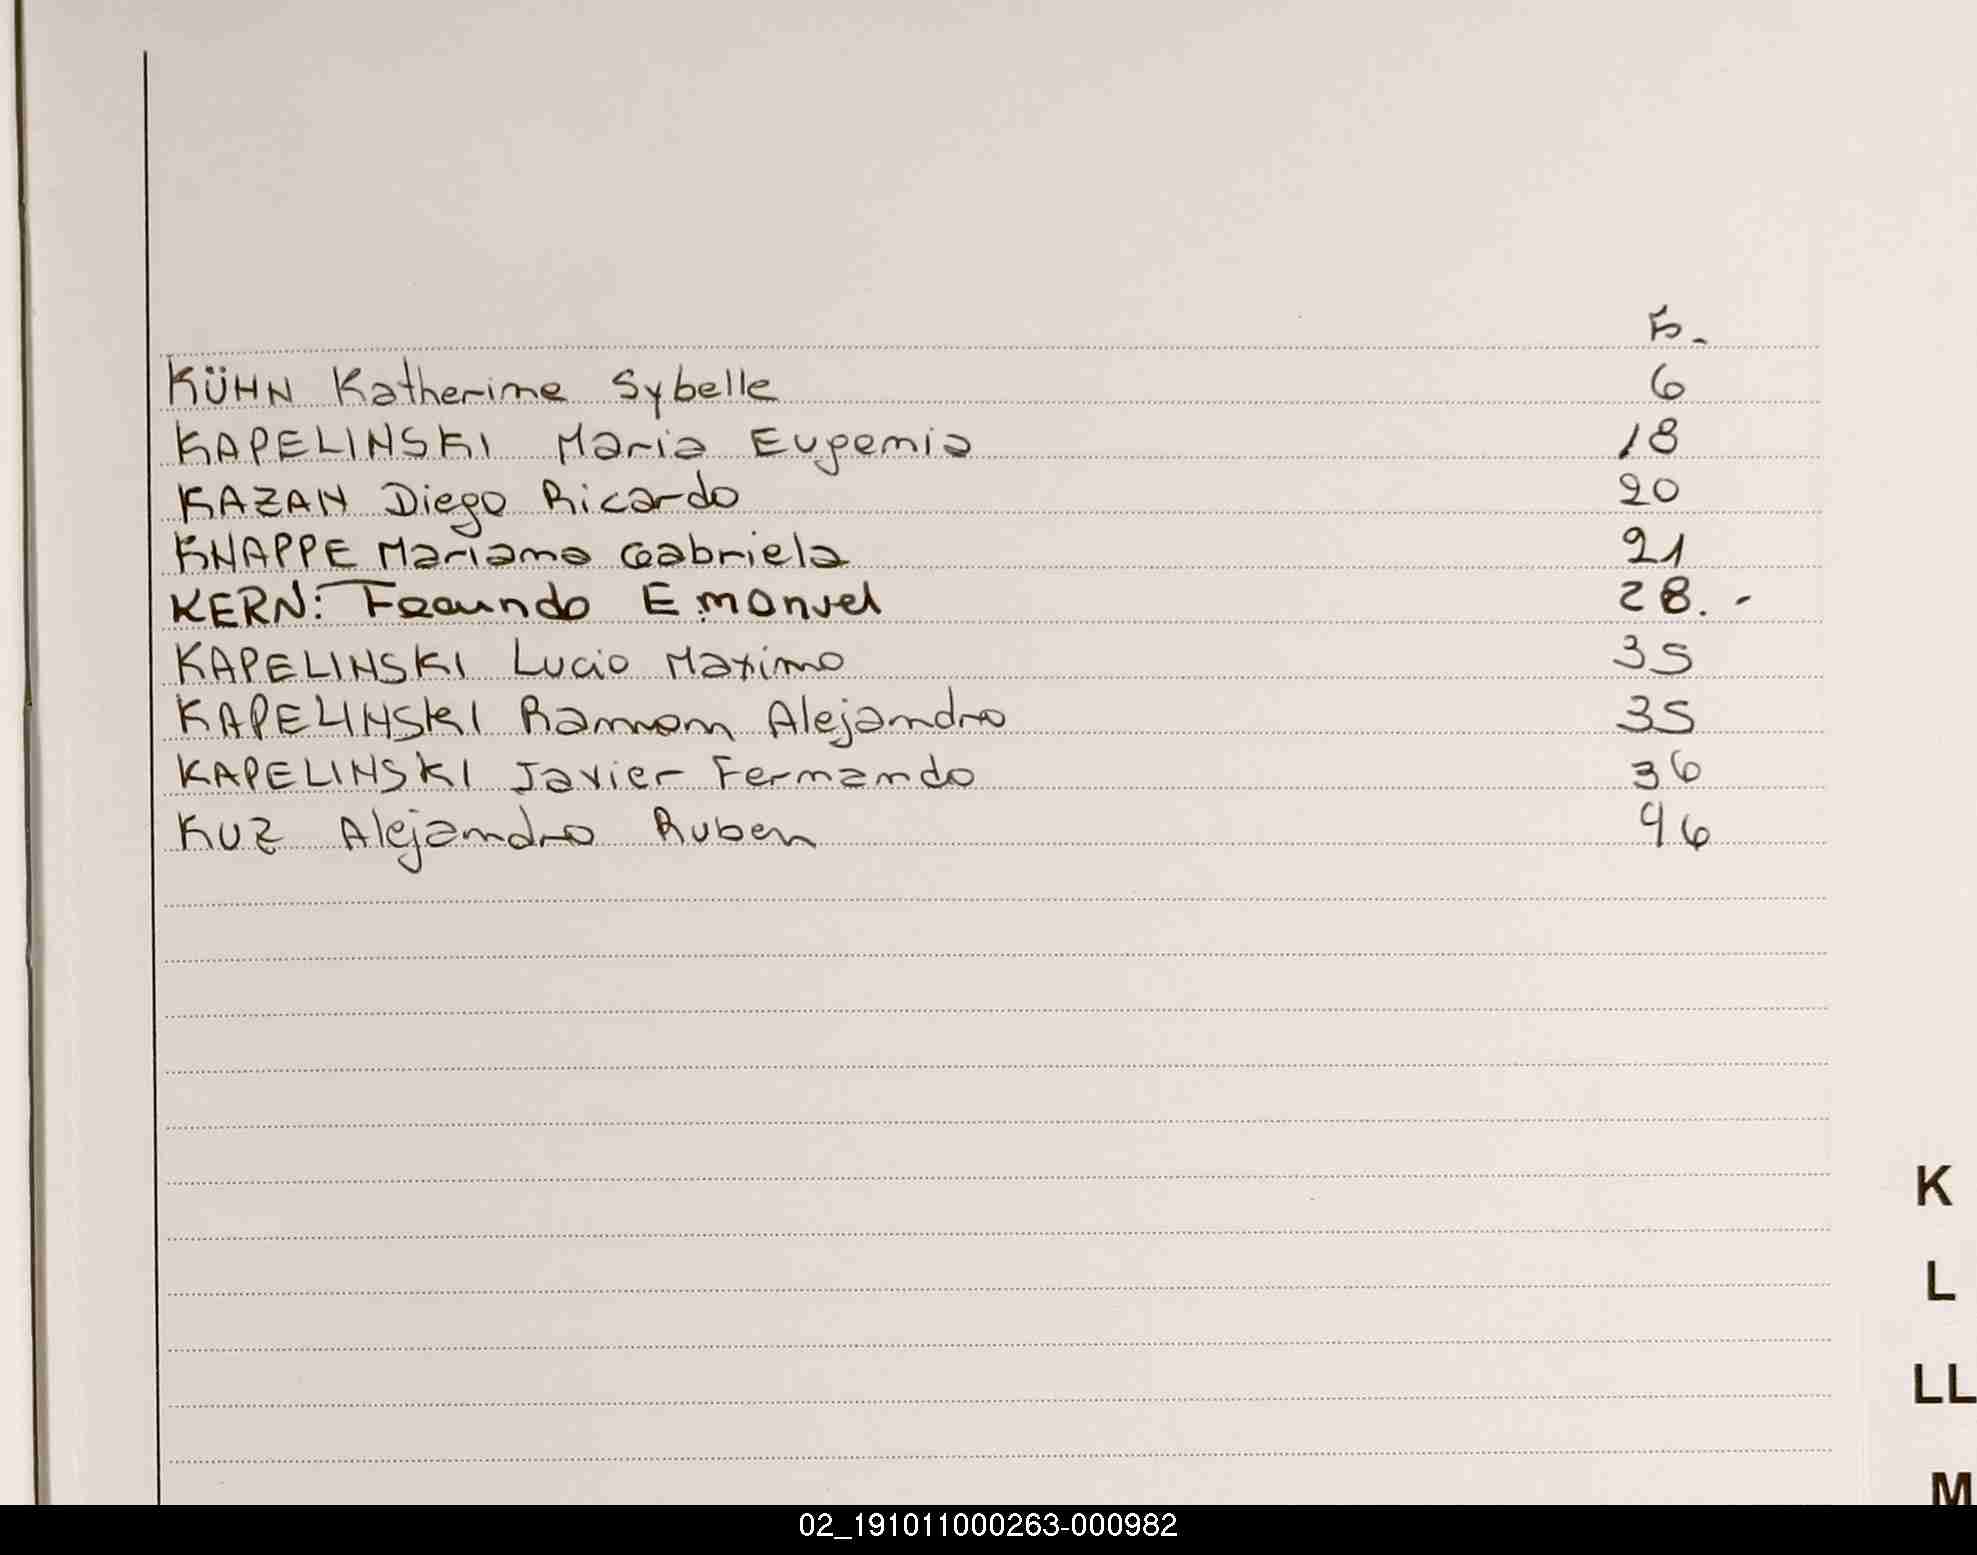 Fo.
KÜHN Katherine Sybelle 6
KAPELINSKI Maria Eugenia 18
KAZAN Diego Ricardo 20
KNAPPE Mariana Gabriela 21
KERN: Facundo Emanuel 28.-
KAPELINSKI Lucio Maximo 35
KAPELINSKI Ramon Alejandro 35
KAPELINSKI Javier Fernando 36
KUZ Alejandro Ruben 46
K
L
LL
M
02_191011000263-000982